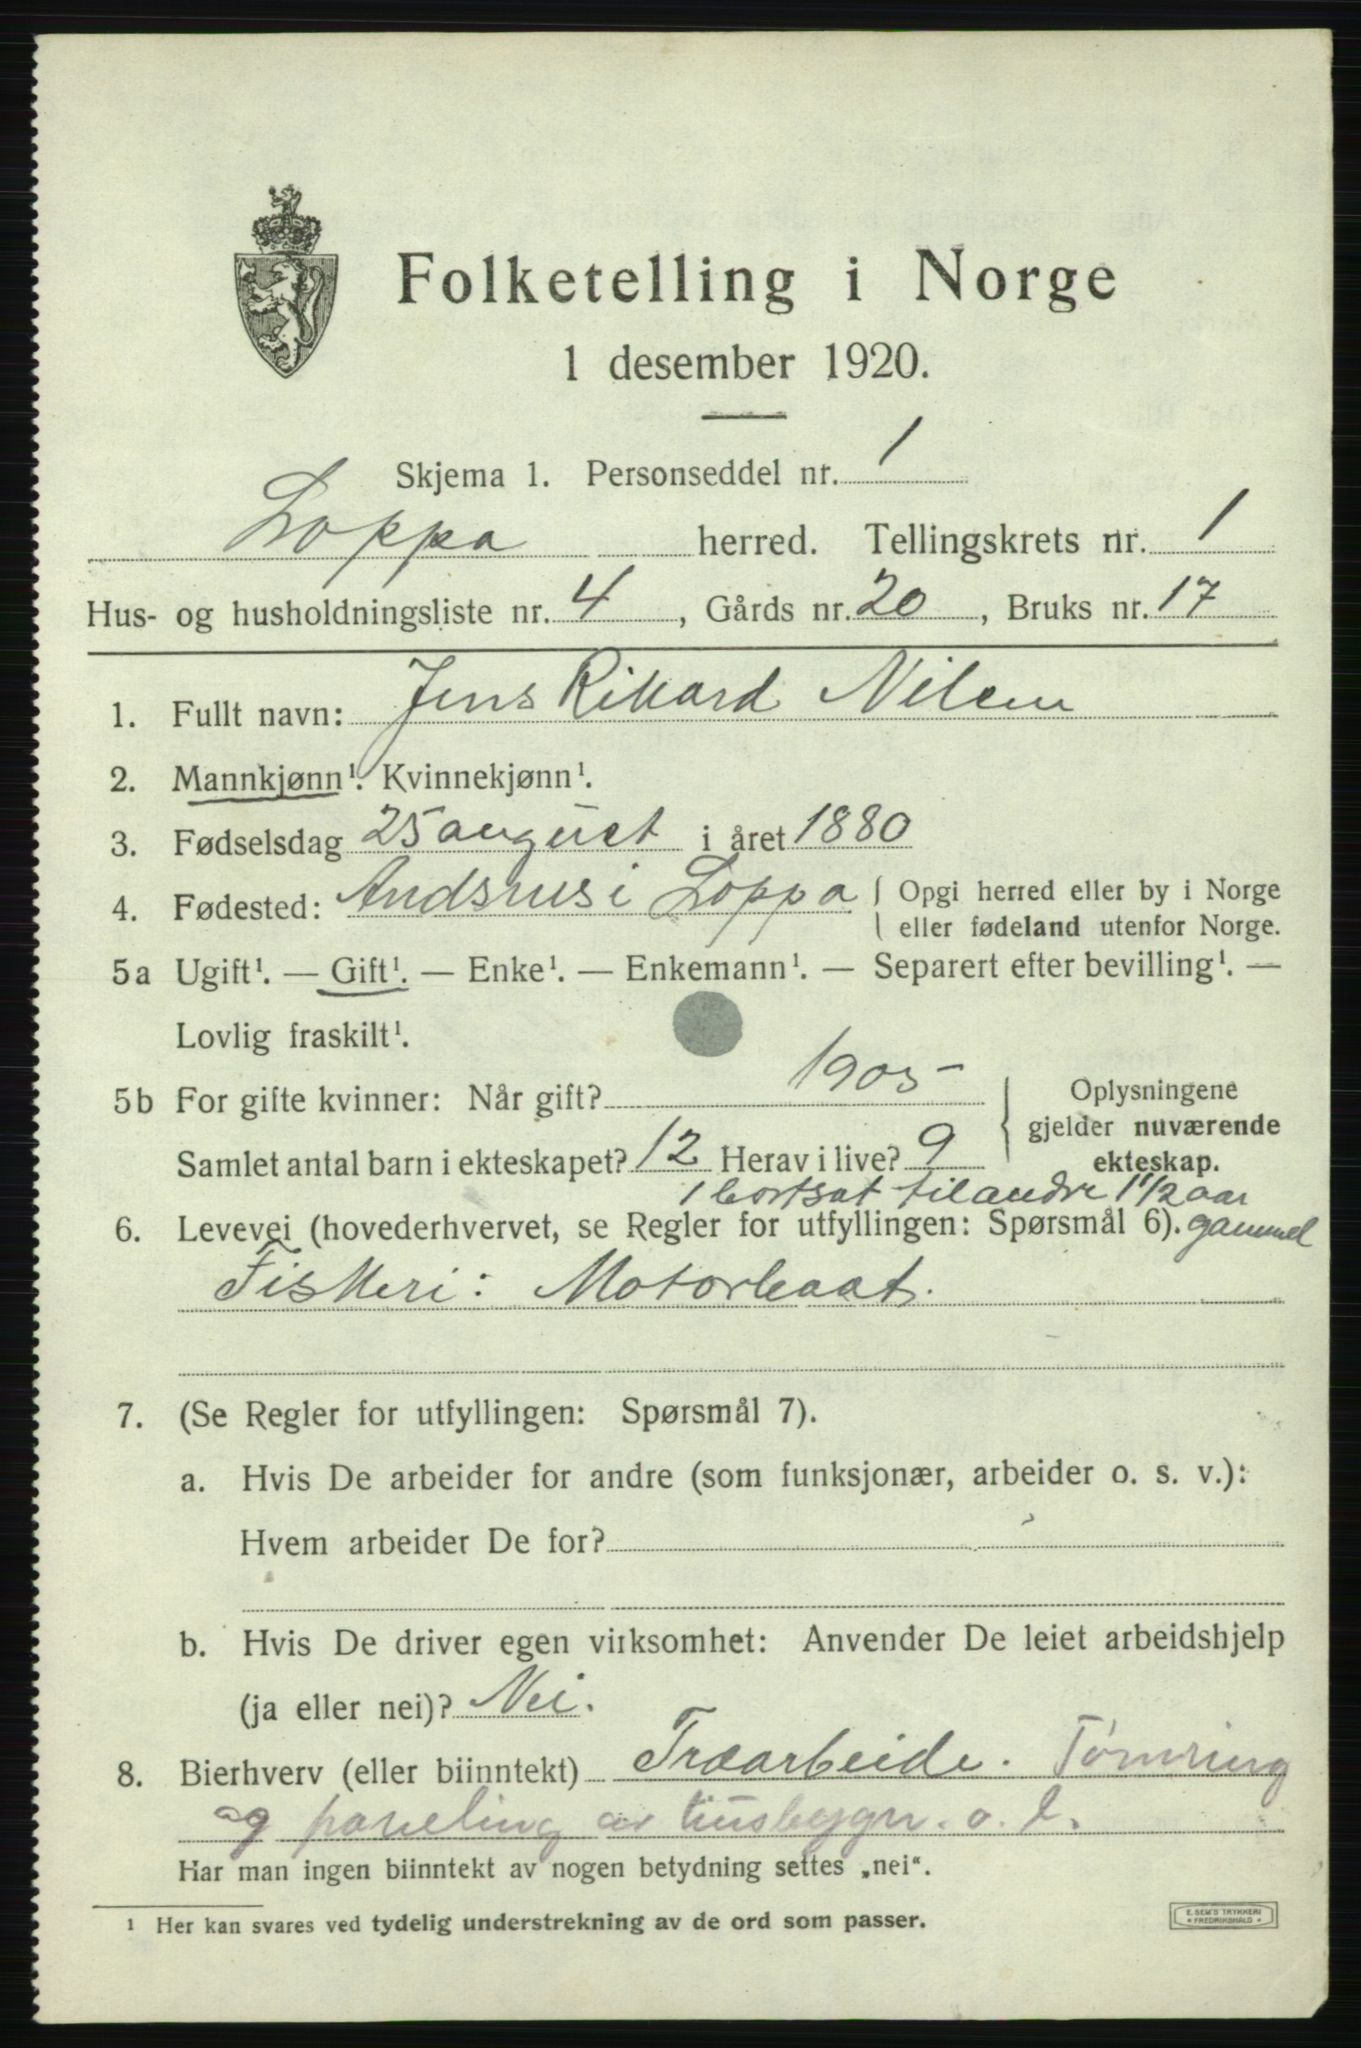 Folketelling i Norge
1 desember 1920.
Skjema 1. Personseddel nr. 1
Loppa herred. Tellingskrets nr. 1
Hus- og husholdningsliste nr. 4, Gårds nr. 20, Bruks nr. 17
1. Fullt navn: Jens Rikard Nilsen
2. Mannkjønn¹. Kvinnekjønn¹.
3. Fødselsdag 25 august i året 1880
4. Fødested: Andsnes i Loppa { Opgi herred eller by i Norge
eller fødeland utenfor Norge.
5a Ugift¹. — Gift¹. — Enke¹. — Enkemann¹. — Separert efter bevilling¹. —
Lovlig fraskilt¹.
5b For gifte kvinner: Når gift? 1905 { Oplysningene
gjelder nuværende
ekteskap.
Samlet antal barn i ekteskapet? 12 Herav i live? 9
1 bortsat til andre 1 1/2 aar
6. Levevei (hovederhvervet, se Regler for utfyllingen: Spørsmål 6). gammel
Fiskeri: Motorbaat.
7. (Se Regler for utfyllingen: Spørsmål 7).
a. Hvis De arbeider for andre (som funksjonær, arbeider o. s. v.):
Hvem arbeider De for?
b. Hvis De driver egen virksomhet: Anvender De leiet arbeidshjelp
(ja eller nei)? Nei.
8. Bierhverv (eller biinntekt) Træarbeide. Tømring
og paneling av husbygn. o. l.
Har man ingen biinntekt av nogen betydning settes „nei“.
¹ Her kan svares ved tydelig understrekning av de ord som passer.
E. SEM'S TRYKKERI
* FREDRIKSHALD *